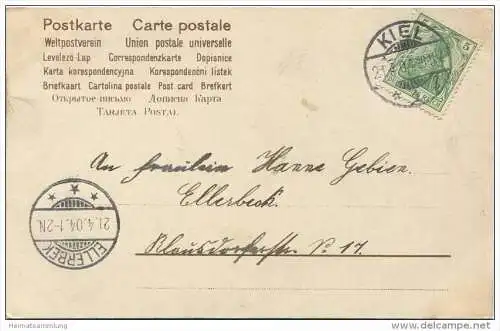 Postkarte Carte postale
Weltpostverein Union postale universelle
Levelező-Lap Correspondenzkarte Dopisnice
Karta korespondencyjna Korespondenční lístek
Briefkaart Cartolina postale Post card Brefkort
Открытое письмо Дописна Карта
Tarjeta Postal
KIEL
5
An Fräulein Hanne Gebien.
Ellerbeck.
Klausdorferstr. No 17.
21.4.04.1-2N.
ELLERBEK
Heimatsammlung
delcampe.net